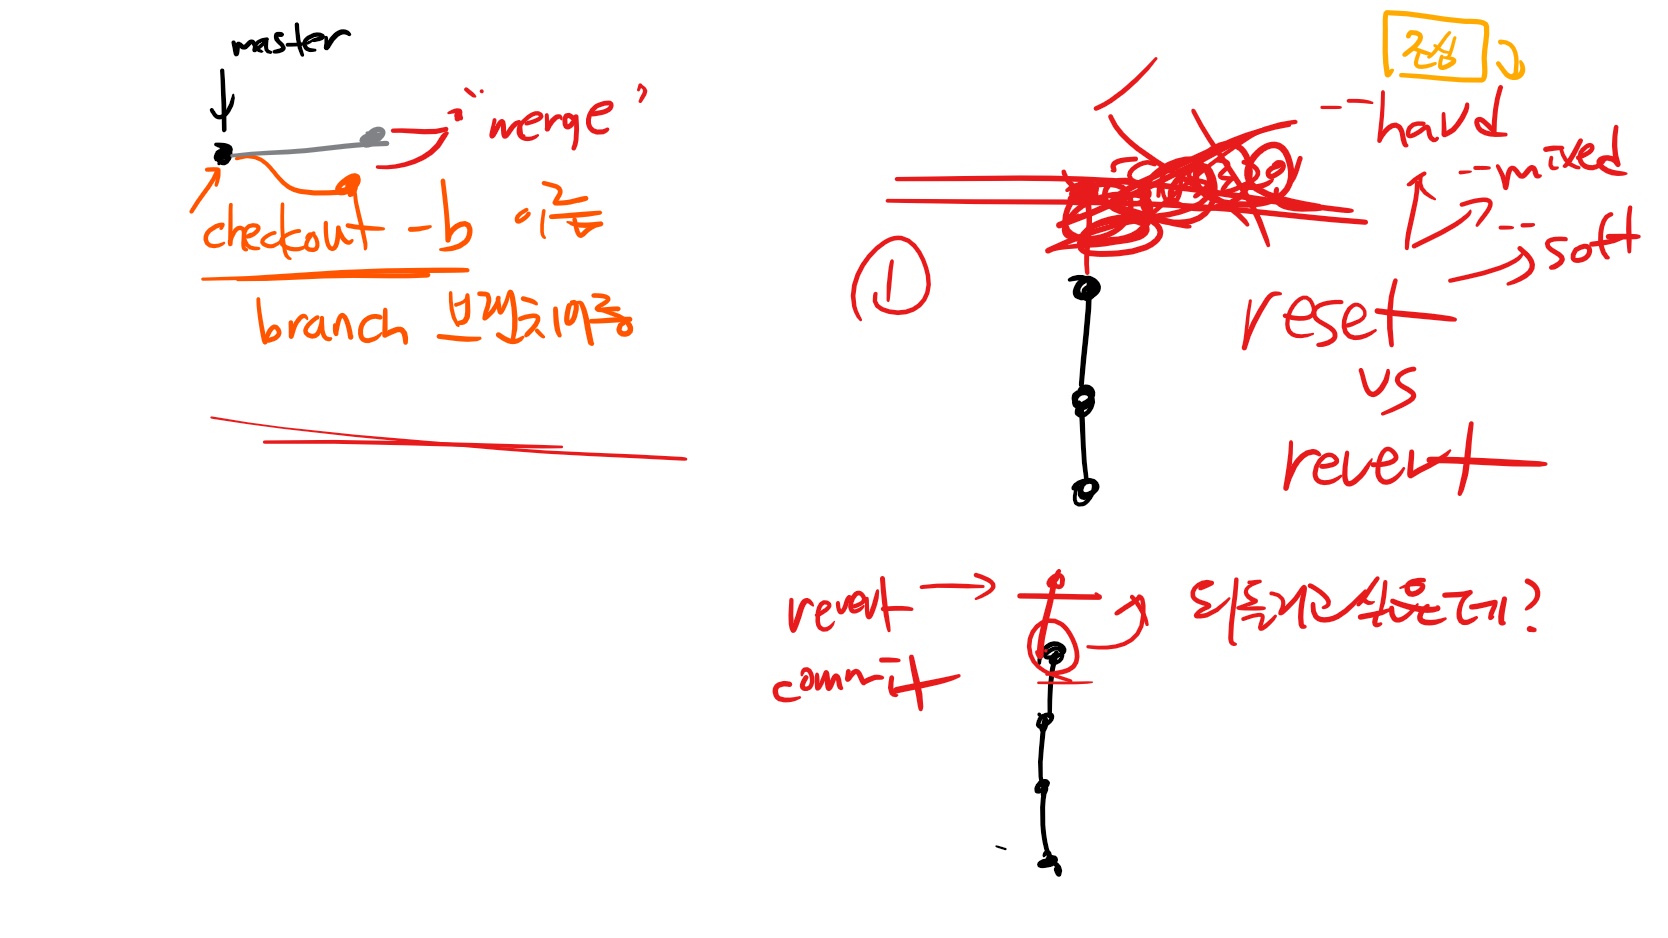 master
"merge"
checkout -b 이름
branch 브랜치이름
조심
--hard
--mixed
--soft
①
reset
vs
revert
revert
commit
되돌리고 싶은거?